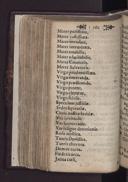 Mater purissima,
Mater castissima,
Mater inviolata,
Mater intemerata,
Mater amabilis,
Mater admirabilis,
Mater Creatoris,
Mater Salvatoris,
Virgo prudentissima,
Virgo veneranda,
Virgo prædicanda,
Virgo potens,
Virgo clemens,
Virgo fidelis,
Speculum justitiæ,
Sedes sapientiæ,
Causa nostræ lætitiæ,
Vas spirituale,
Vas honorabile,
Vas insigne devotionis,
Rosa mystica,
Turris Davidica,
Turris eburnea,
Domus aurea,
Fœderis arca,
Janua cœli,